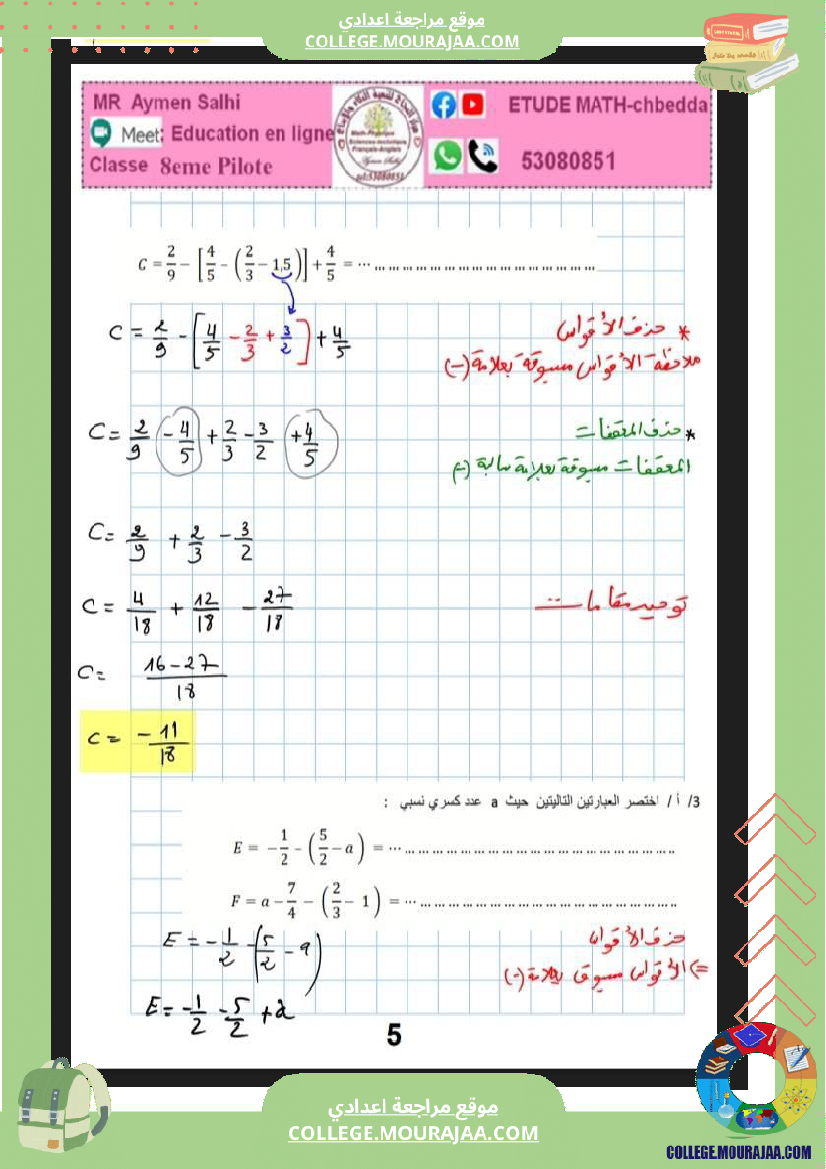 موقع مراجعة اعدادي
COLLEGE.MOURAJAA.COM
MR Aymen Salhi
Meet: Education en ligne
Classe 8eme Pilote
ETUDE MATH-chbedda
53080851
C = 2/9 − [4/5 − (2/3 − 1,5)] + 4/5 = ...
C = 2/9 − [4/5 − 2/3 + 3/2] + 4/5
* حذف الأقواس
ملاحظة الأقواس مسبوقة بعلامة (−)
C = 2/9 − 4/5 + 2/3 − 3/2 + 4/5
* حذف المعقفات
المعقفات مسبوقة بعلامة سالبة (−)
C = 2/9 + 2/3 − 3/2
C = 4/18 + 12/18 − 27/18
توحيد مقامات
C = 16 − 27/18
C = − 11/18
3/ أ / اختصر العبارتين التاليتين حيث a عدد كسري نسبي :
E = − 1/2 − (5/2 − a) = ...
F = a − 7/4 − (2/3 − 1) = ...
E = − 1/2 − (5/2 − a)
حذف الأقواس
=> الأقواس مسبوق بعلامة (−)
E = − 1/2 − 5/2 + a
5
موقع مراجعة اعدادي
COLLEGE.MOURAJAA.COM
COLLEGE.MOURAJAA.COM